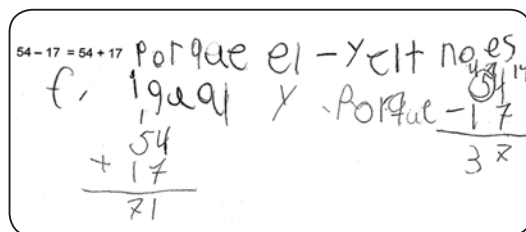 54 – 17 = 54 + 17 Porque el – y el + no es
f, Igual y Porque
4 14
54
- 17
37
1
54
+ 17
71